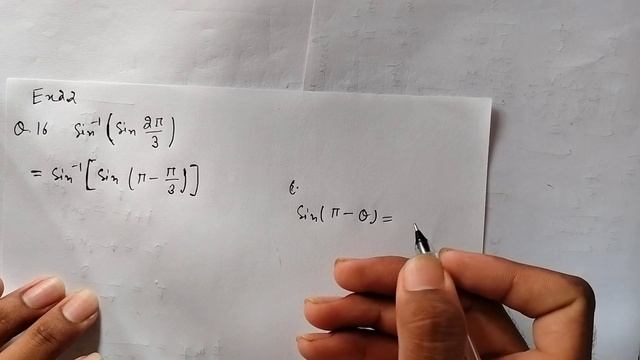 Ex 2.2
Q.16 Sin⁻¹(Sin 2π/3)
= Sin⁻¹[Sin (π − π/3)]
Sin(π − θ) =